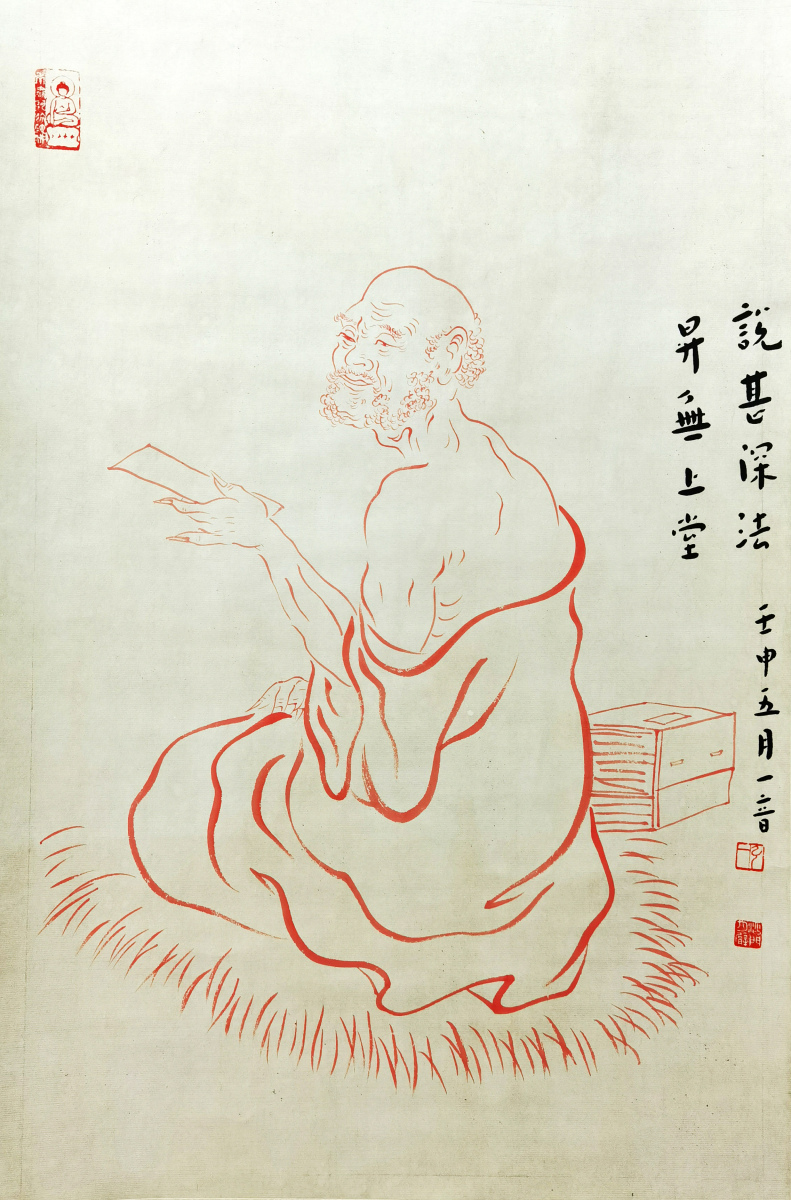 說甚深法
昇無上堂
壬申五月一音
弘一